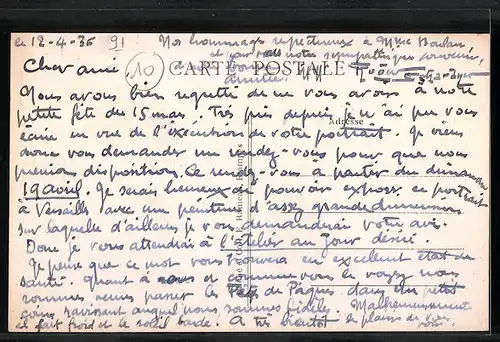 ce 12-4-36
Nos hommages respectueux à Mme
et pour vous notre sympathique souvenir,
Cher ami
10
CARTE POSTALE
Nous avons bien regretté de ne vous avoir à notre
petite fête du 15 mars. Très pris depuis je n'ai pu vous
Adresse
écrire en vue de l'exécution de votre portrait. Je viens
donc vous demander un rendez-vous pour que nous
prenions dispositions. Ce rendez-vous à partir du dimanche
19 avril. Je serais heureux de pouvoir exposer ce portrait
à Versailles avec une peinture d'assez grande dimension
sur laquelle d'ailleurs je vous demanderai votre avis.
Donc je vous attendrai à l'atelier au jour désiré.
Je pense que ce mot vous trouvera en excellent état de
santé. Quant à nous et comme vous le voyez nous
sommes venus passer les fêtes de Pâques dans un petit
coin ravissant auquel nous sommes fidèles. Malheureusement
il fait froid et le soleil boude. A très bientôt le plaisir de vous
voir.